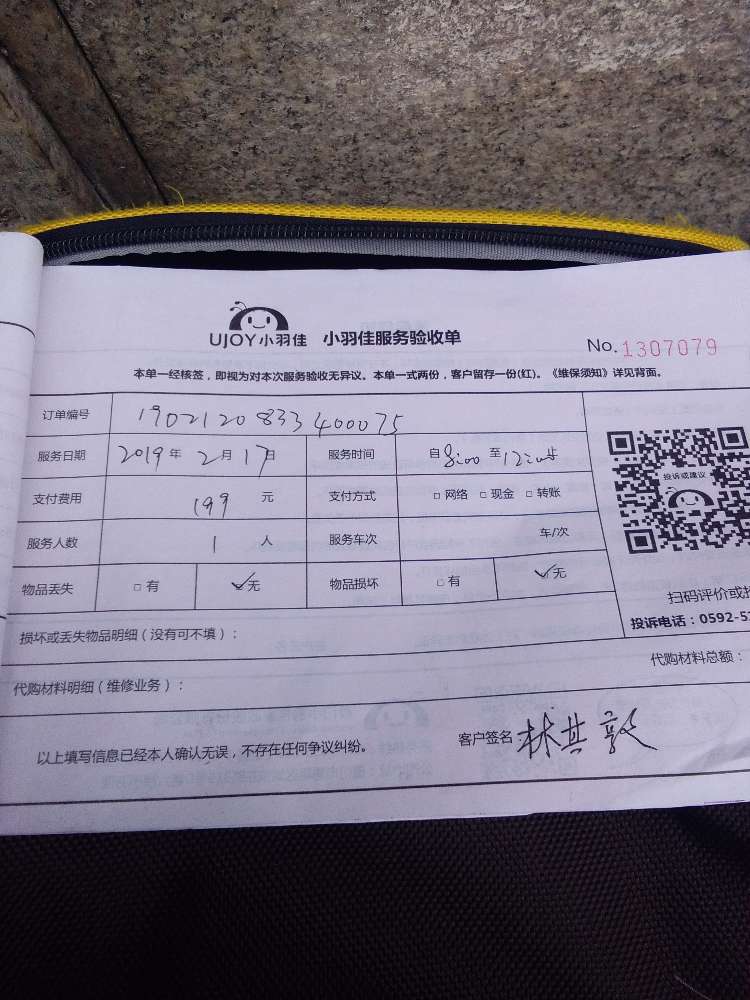 UJOY小羽佳 小羽佳服务验收单
No.1307079
本单一经核签，即视为对本次服务验收无异议。本单一式两份，客户留存一份(红)。《维保须知》详见背面。
订单编号 1902120833400075
服务日期 2019年2月17日 服务时间 自8:00至12:00
支付费用 199元 支付方式 □网络 □现金 □转账
服务人数 1人 服务车次 车/次
物品丢失 □有 ✓无 物品损坏 □有 ✓无
投诉或建议
扫码评价或投
投诉电话：0592-5
损坏或丢失物品明细（没有可不填）：
代购材料总额：
代购材料明细（维修业务）：
以上填写信息已经本人确认无误，不存在任何争议纠纷。
客户签名：林其敦